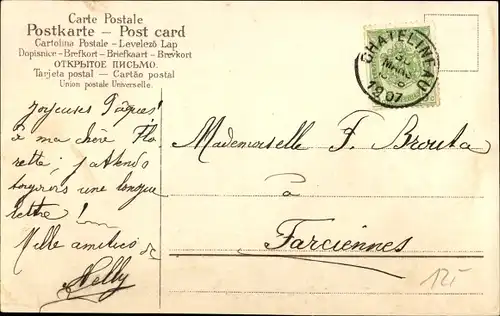 Carte Postale
Postkarte – Post card
Cartolina Postale – Levelező Lap
Dopisnice – Brefkort – Briefkaart – Brevkort
ОТКРЫТОЕ ПИСЬМО.
Tarjeta postal – Cartão postal
Union postale Universelle.
CHATELINEAU
1907
Joyeuses Pâques!
à ma chère Flo
rette; j'attends
toujours une longue
lettre!
Mille amitiés de
Nelly
Mademoiselle F. Brouta
à
Farciennes
12,-